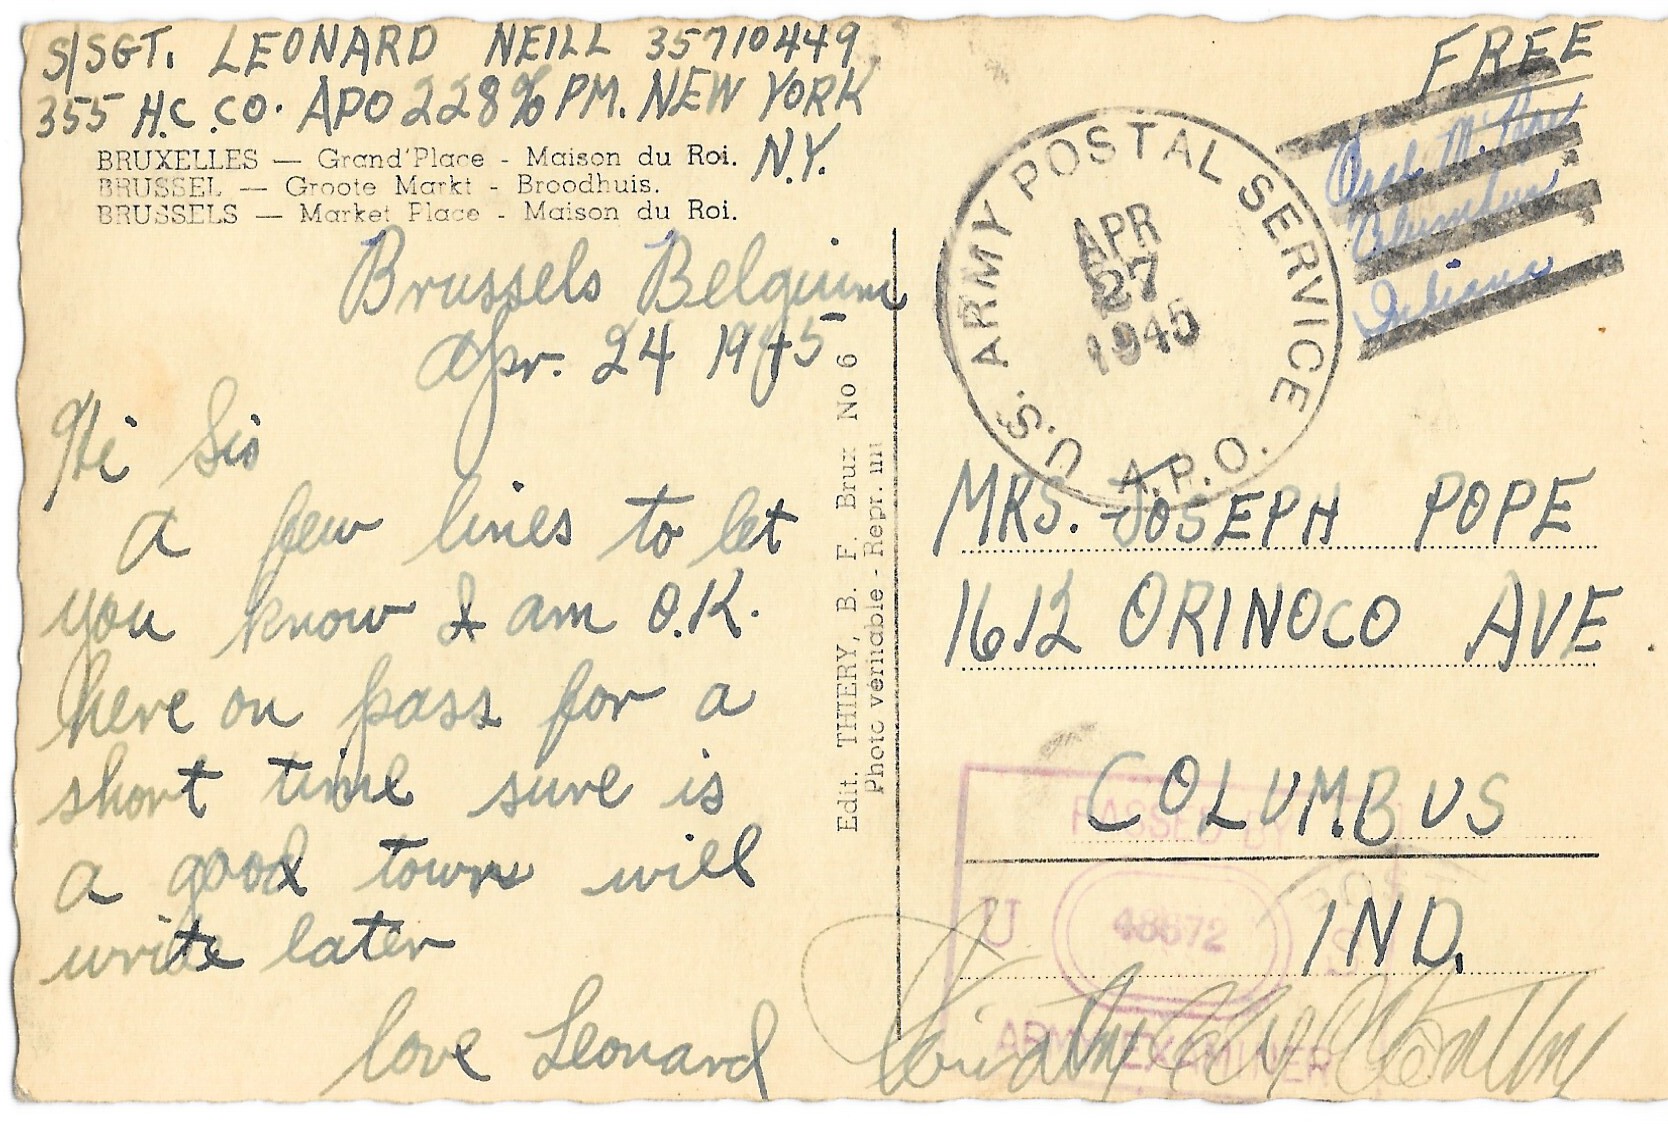 S/SGT. LEONARD NEILL 35710449
355 H.C. CO. APO 228 % PM. NEW YORK
N.Y.
BRUXELLES — Grand'Place - Maison du Roi.
BRUSSEL — Groote Markt - Broodhuis.
BRUSSELS — Market Place - Maison du Roi.
Brussels Belgium
Apr. 24 1945
Hi Sis
a few lines to let
you know I am O.K.
here on pass for a
short time sure is
a good town will
write later
love Leonard
Edit. THIERY, B. F. Brux No 6
Photo véritable - Repr. int
FREE
Columbus
Indiana
U.S. ARMY POSTAL SERVICE
A.P.O.
APR
27
1945
MRS. JOSEPH POPE
1612 ORINOCO AVE
COLUMBUS
IND.
PASSED BY
U
48672
ARMY EXAMINER